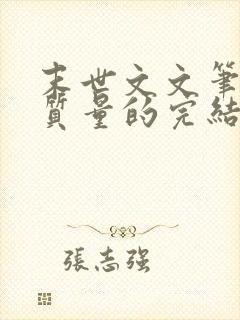 末世文文筆
質量的完結
張志強